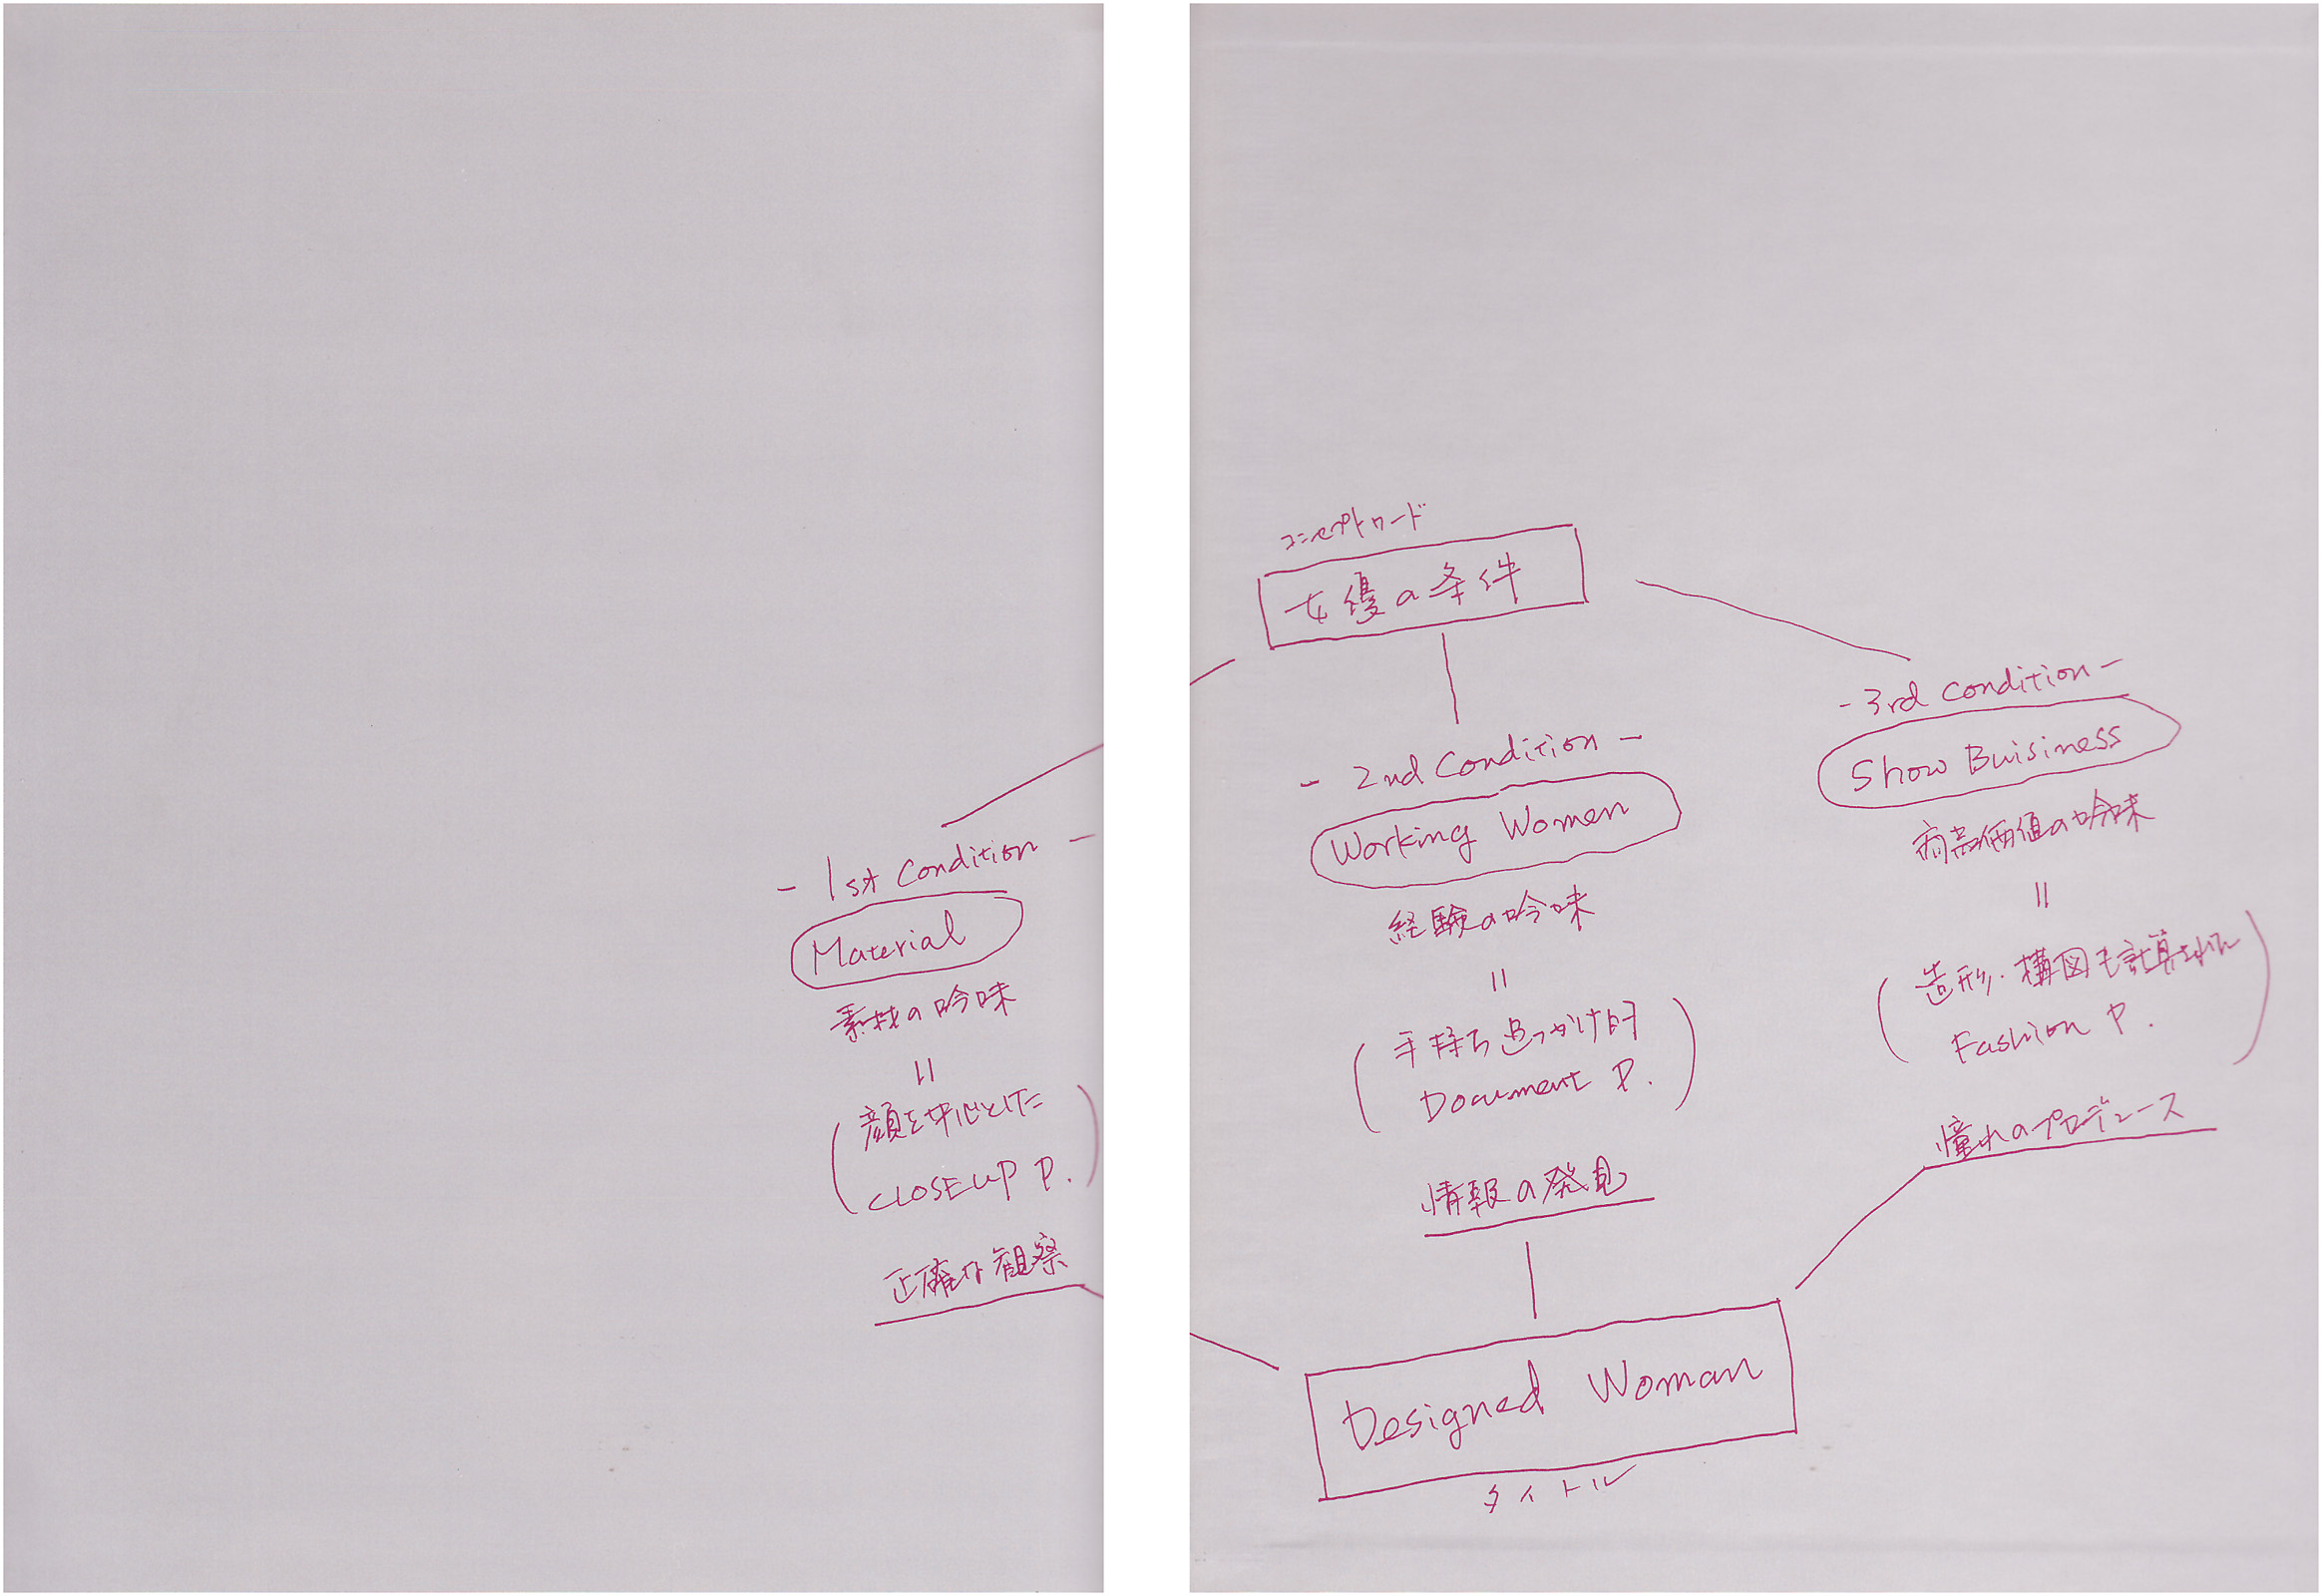 コンセプトワード
女優の条件
- 1st Condition -
Material
素材の吟味
=
(顔を中心とした
CLOSE UP P.)
正確な観察
- 2nd Condition -
Working Women
経験の吟味
=
(手持ち追っかけ的
Document P.)
情報の発見
- 3rd Condition -
Show Buisiness
商品価値の吟味
=
(造形・構図も計算された
Fashion P.)
憧れのプロデュース
Designed Woman
タイトル